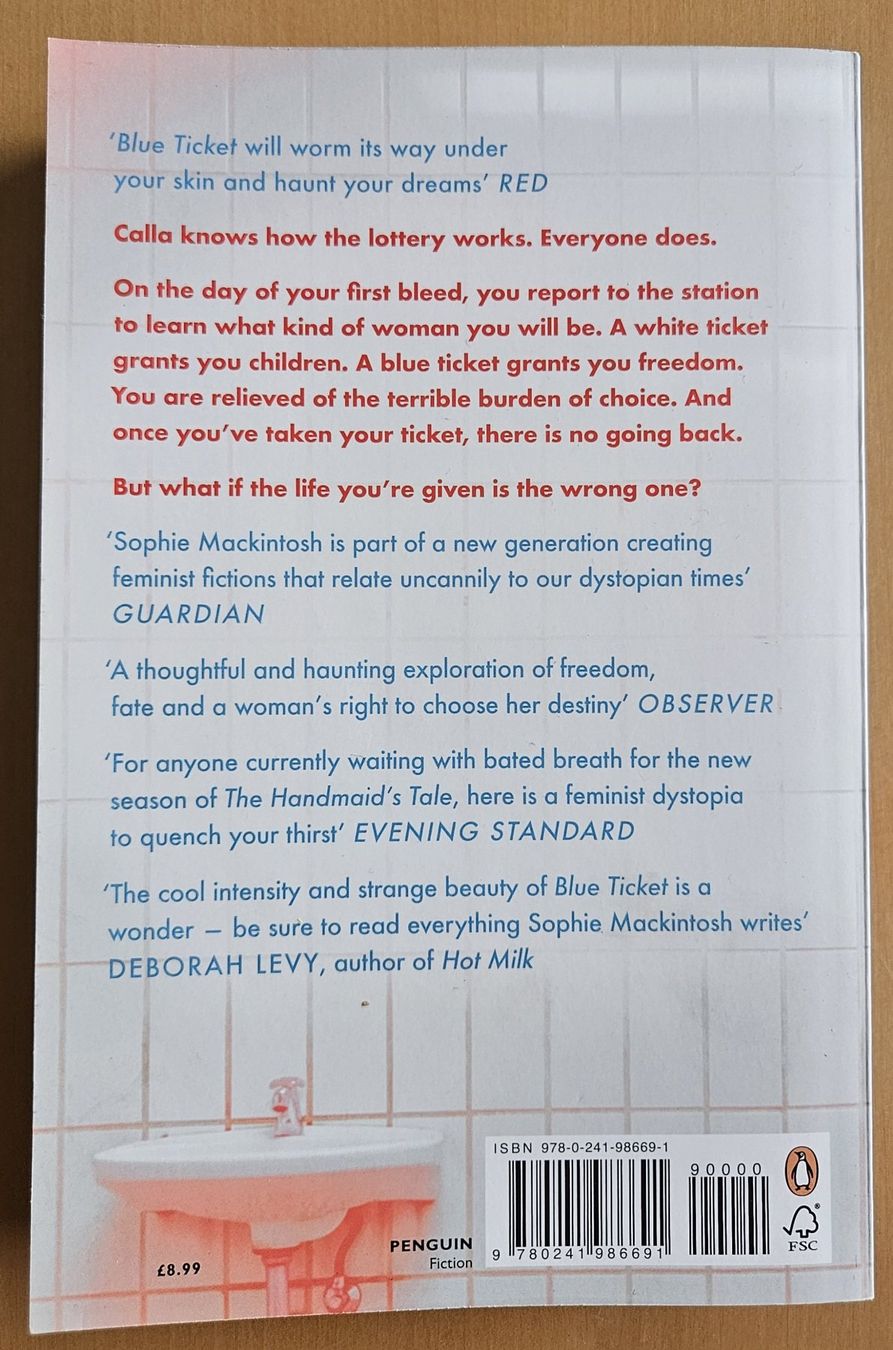 ‘Blue Ticket will worm its way under
your skin and haunt your dreams’ RED
Calla knows how the lottery works. Everyone does.
On the day of your first bleed, you report to the station
to learn what kind of woman you will be. A white ticket
grants you children. A blue ticket grants you freedom.
You are relieved of the terrible burden of choice. And
once you’ve taken your ticket, there is no going back.
But what if the life you’re given is the wrong one?
‘Sophie Mackintosh is part of a new generation creating
feminist fictions that relate uncannily to our dystopian times’
GUARDIAN
‘A thoughtful and haunting exploration of freedom,
fate and a woman’s right to choose her destiny’ OBSERVER
‘For anyone currently waiting with bated breath for the new
season of The Handmaid’s Tale, here is a feminist dystopia
to quench your thirst’ EVENING STANDARD
‘The cool intensity and strange beauty of Blue Ticket is a
wonder – be sure to read everything Sophie Mackintosh writes’
DEBORAH LEVY, author of Hot Milk
£8.99
PENGUIN
Fiction
ISBN 978-0-241-98669-1
90000
9 780241 986691
FSC®